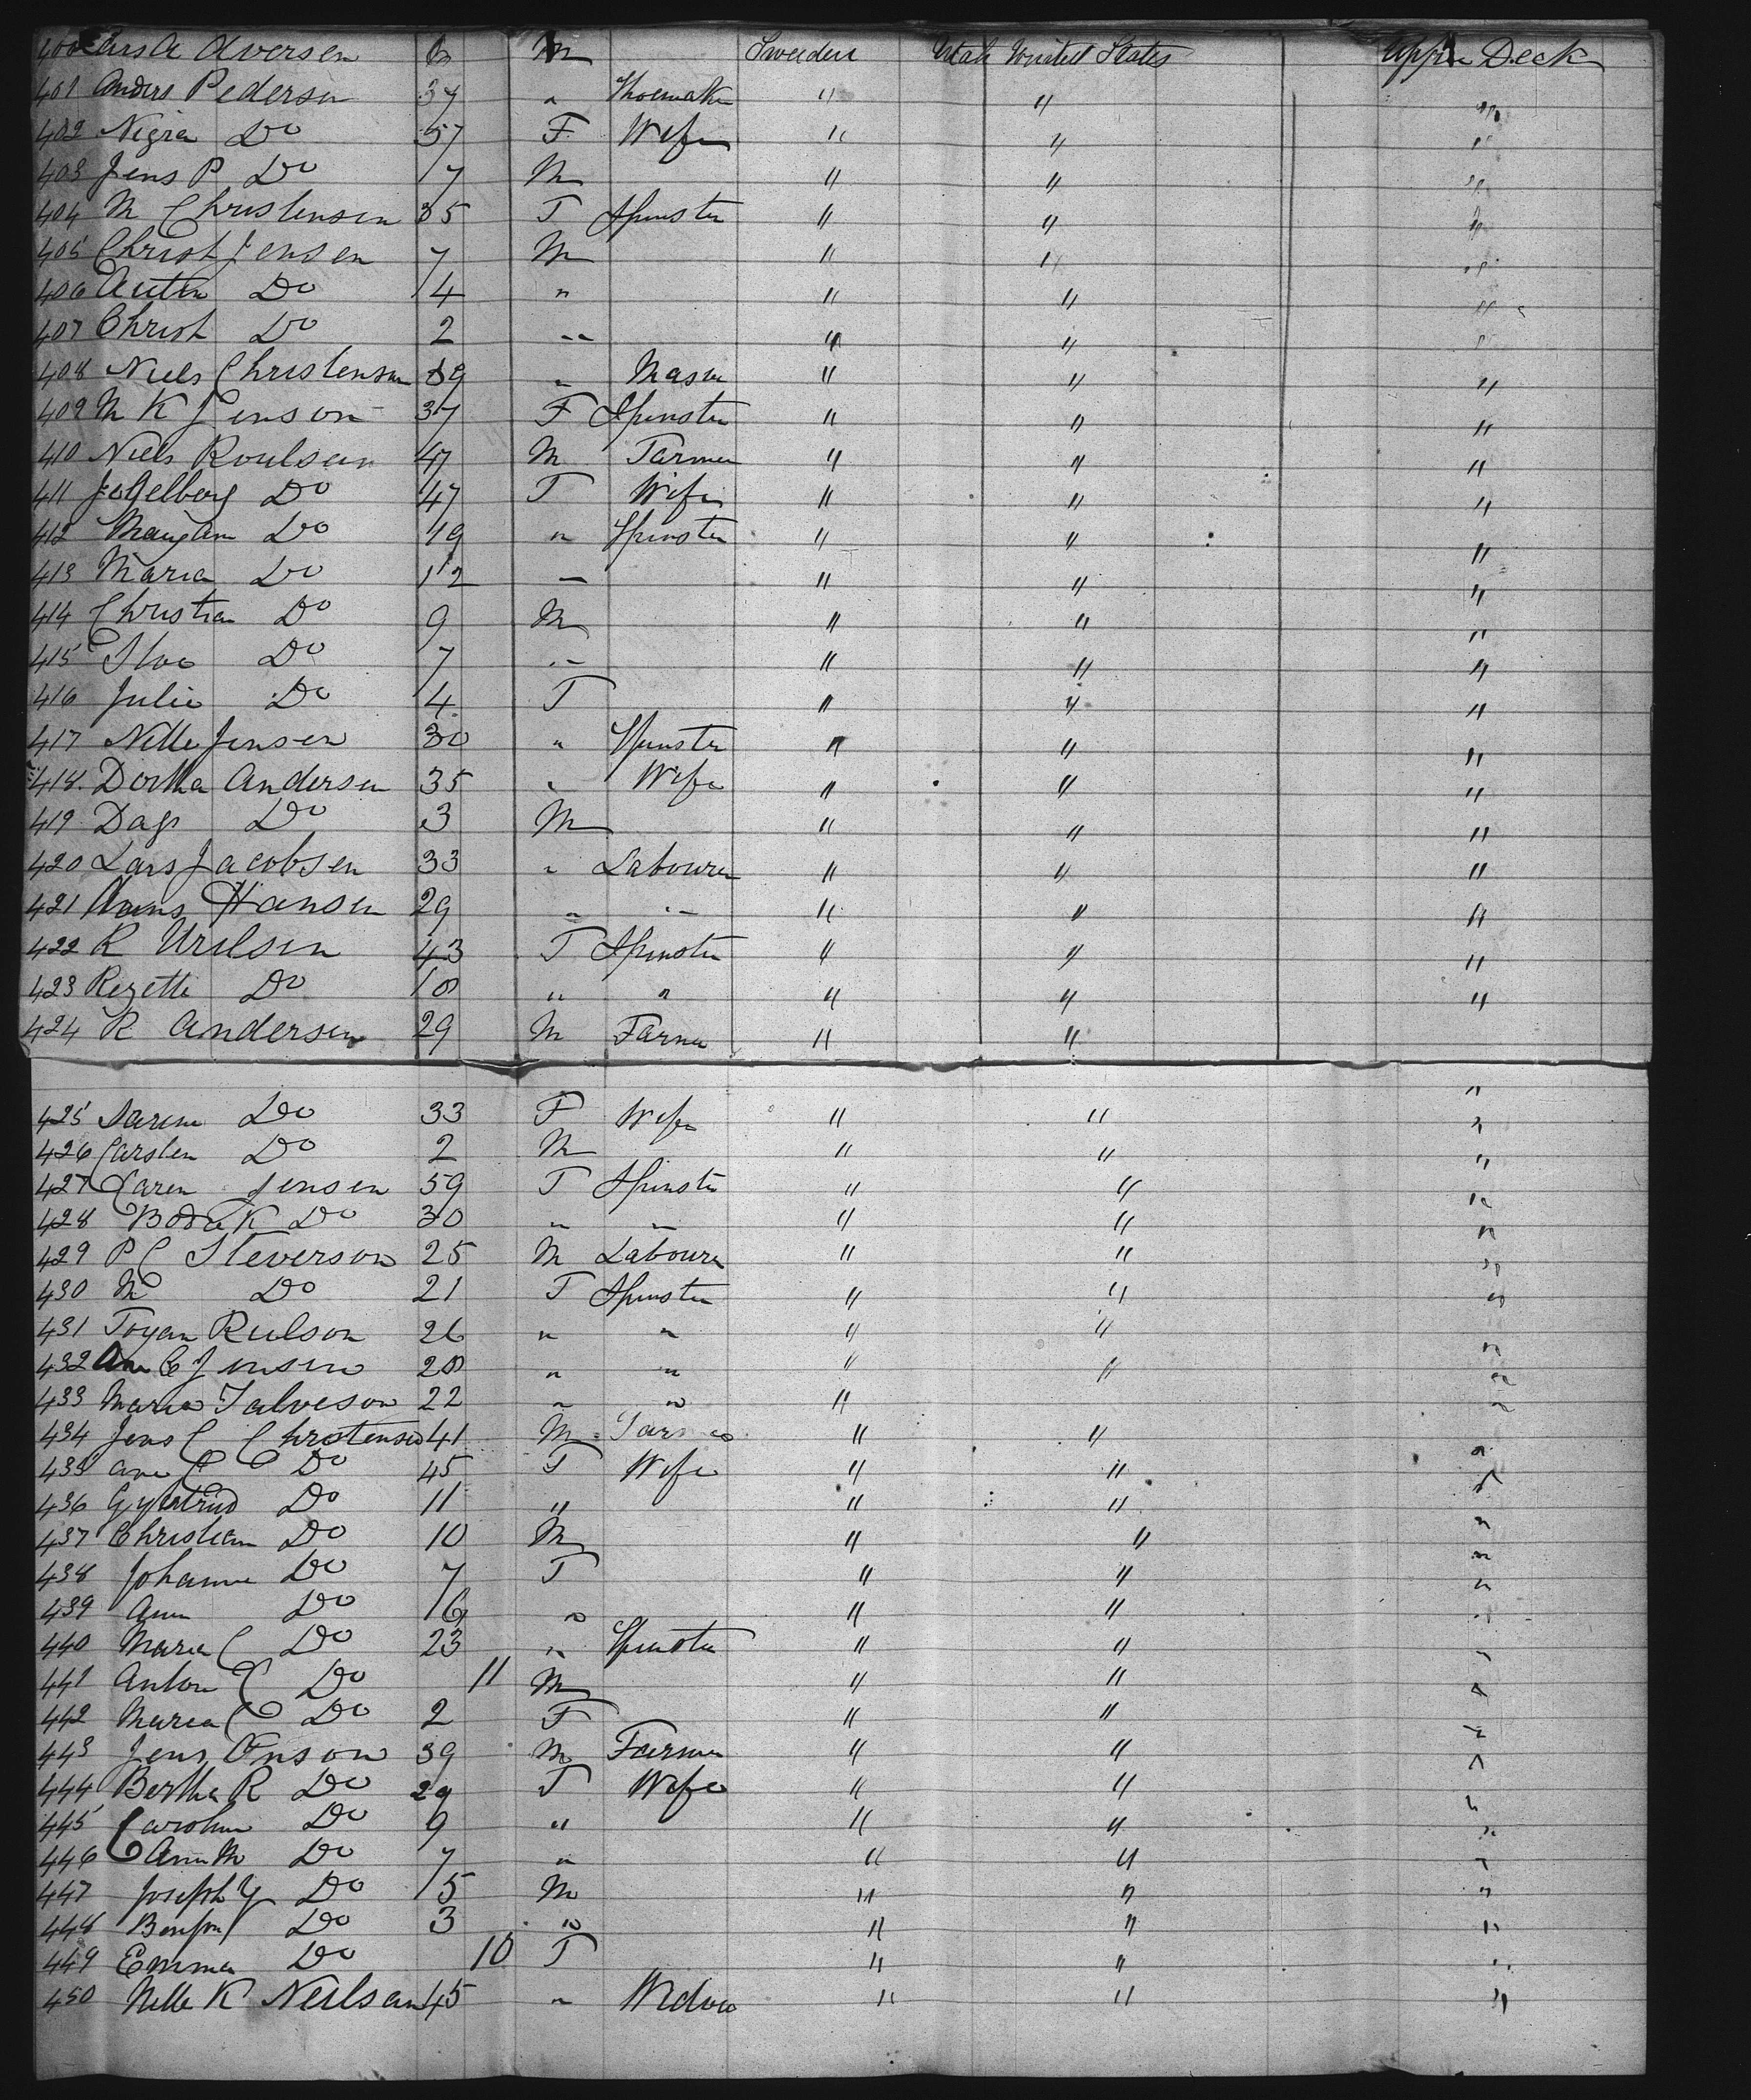 400 Lars A Aversen M Sweeden Utah United States Upper Deck
401 Anders Pedersen 37 " Shoemaker " " "
402 Do 57 F Wife " " "
403 Jens P Do 7 M " " "
404 M Christensen 35 F Spinster " " "
405 Christ Jensen 7 M " " "
406 Do 4 " " " "
407 Christ Do 2 " " " "
408 Niels Christensen 59 " Mason " " "
409 M K Jenson 37 F Spinster " " "
410 Niels Roulsen 47 M Farmer " " "
411 Do 47 F Wife " " "
412 Mary Ann Do 19 " Spinster " " "
413 Maria Do 12 " " " "
414 Christian Do 9 M " " "
415 Do 7 " " " "
416 Julie Do 4 F " " "
417 Nelle Jensen 30 " Spinster " " "
418 Dortha Andersen 35 " Wife " " "
419 Dags Do 3 M " " "
420 Lars Jacobsen 33 " Labourer " " "
421 Hans Hansen 29 " " " " "
422 R 43 F Spinster " " "
423 Rezette Do 18 " " " " "
424 R Andersen 29 M Farmer " " "
425 Do 33 F Wife " " "
426 Carsten Do 2 M " " "
427 Caren Jensen 59 F Spinster " " "
428 K Do 30 " " " " "
429 P C Steverson 25 M Labourer " " "
430 M Do 21 F Spinster " " "
431 Rulson 26 " " " " "
432 Ane C Jensen 28 " " " " "
433 Maria Salveson 22 " " " "
434 Jens C Christensen 41 M " " "
435 Ane C Do 45 F Wife " " "
436 Do 11 " " " "
437 Christian Do 10 M " " "
438 Johanne Do 7 F " " "
439 Ann Do 6 " " " "
440 Maria C Do 23 " Spinster " " "
441 Anton C Do 11 M " " "
442 Maria C Do 2 F " " "
443 Jens 39 M Farmer " " "
444 Bertha R Do 29 F Wife " " "
445 Caroline Do 9 " " " "
446 Ann M Do 7 " " " "
447 Joseph Y Do 5 M " " "
448 Do 3 " " " "
449 Emma Do 10 F " " "
450 Nelle K Neilsen 45 " Widow " " "